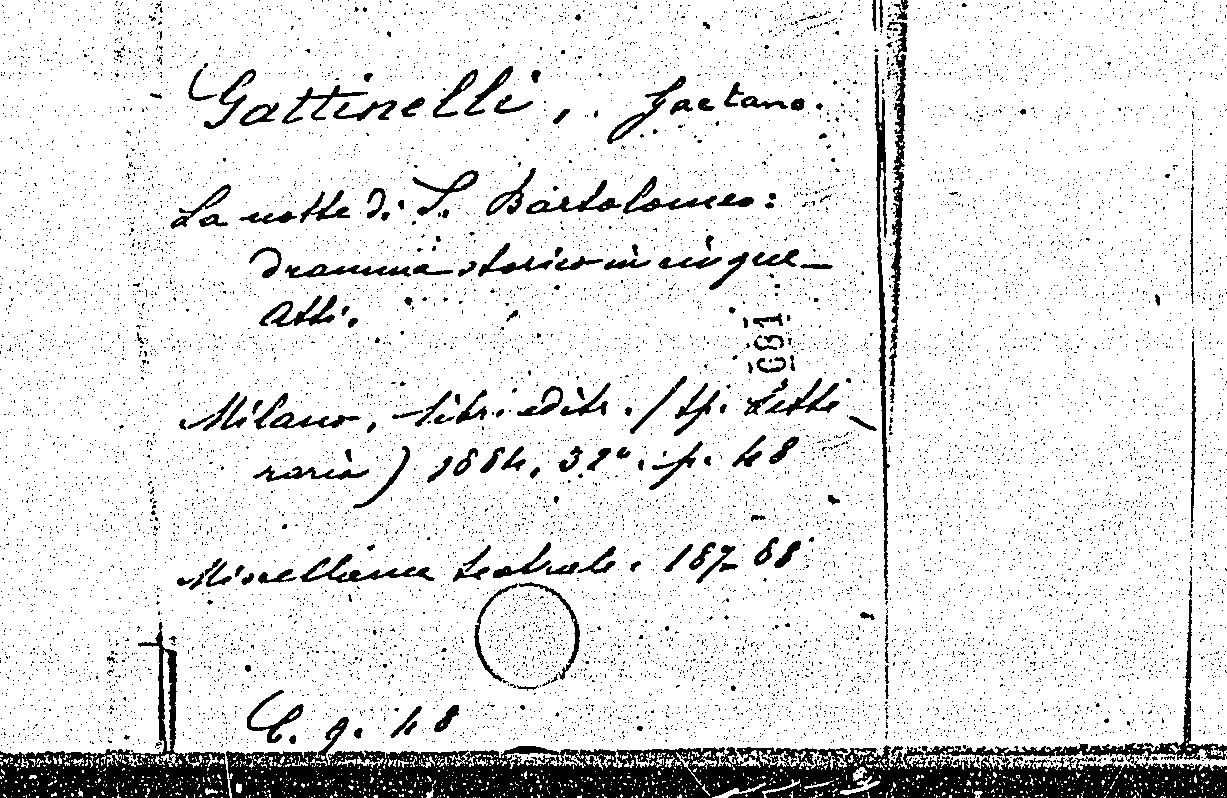 Gattinelli, Gaetano.
La notte di S. Bartolomeo:
dramma storico in cinque
atti.
G81
Milano, libr. editr. (tip. Lette
raria) 1884, 32°. p. 48
Miscellanea teatrale. 187-88
C. g. 48